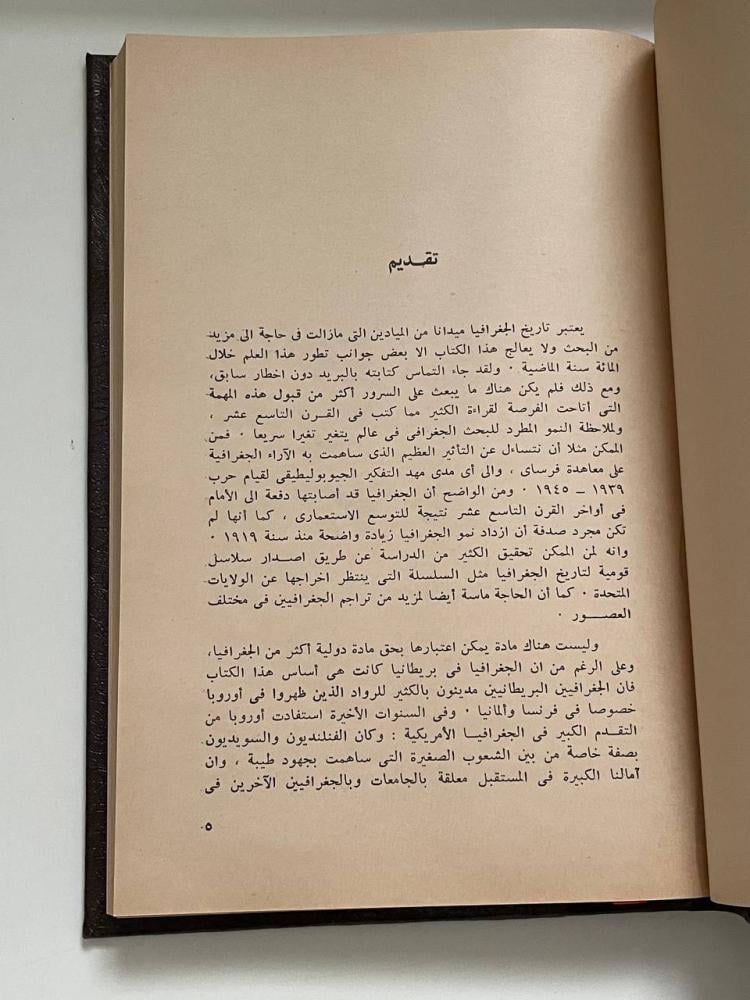 تقـديم
يعتبر تاريخ الجغرافيا ميدانا من الميادين التى مازالت فى حاجة الى مزيد
من البحث ولا يعالج هذا الكتاب الا بعض جوانب تطور هذا العلم خلال
المائة سنة الماضية ٠ ولقد جاء التماس كتابته بالبريد دون اخطار سابق،
ومع ذلك فلم يكن هناك ما يبعث على السرور أكثر من قبول هذه المهمة
التى أتاحت الفرصة لقراءة الكثير مما كتب فى القـرن التاسع عشر ،
ولملاحظة النمو المطرد للبحث الجغرافى فى عالم يتغير تغيرا سريعا ٠ فمن
الممكن مثلا أن نتساءل عن التأثير العظيم الذى ساهمت به الآراء الجغرافية
على معاهدة فرساى ، والى أى مدى مهد التفكير الجيوبوليطيقى لقيام حرب
١٩٣٩ ــ ١٩٤٥ ٠ ومن الواضح أن الجغرافيا قد أصابتها دفعة الى الأمام
فى أواخر القرن التاسع عشر نتيجة للتوسع الاستعمارى ، كما أنها لم
تكن مجرد صدفة أن ازداد نمو الجغرافيا زيادة واضحة منذ سنة ١٩١٩ ٠
وانه لمن الممكن تحقيق الكثير من الدراسة عن طريق اصـدار سلاسل
قومية لتاريخ الجغرافيا مثل السلسلة التى ينتظر اخراجها عن الولايات
المتحدة ٠ كما أن الحاجة ماسة أيضا لمزيد من تراجم الجغرافيين فى مختلف
العصـور ٠
وليست هناك مادة يمكن اعتبارها بحق مادة دولية أكثر من الجغرافيا،
وعلى الرغم من ان الجغرافيا فى بريطانيا كانت هى أساس هذا الكتاب
فان الجغرافيين البريطانيين مدينون بالكثير للرواد الذين ظهروا فى أوروبا
خصوصا فى فرنسا وألمانيا ٠ وفى السنوات الأخيرة استفادت أوروبا من
التقـدم الكبير فى الجغرافيـا الأمريكية : وكان الفنلنديون والسويديون
بصفة خاصة من بين الشعوب الصغيرة التى ساهمت بجهود طيبة ، وان
آمالنا الكبيرة فى المستقبل معلقة بالجامعات وبالجغرافيين الآخرين فى
٥